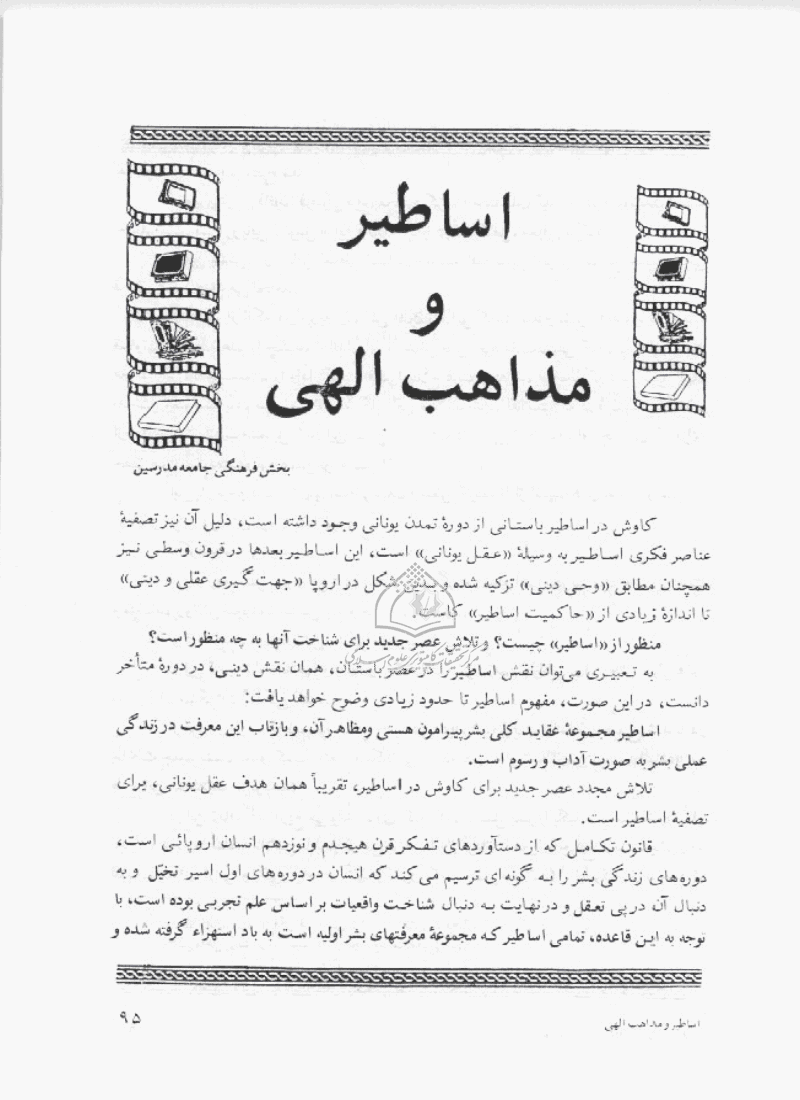 اساطیر
و
مذاهب الهی
بخش فرهنگی جامعه مدرسین
کاوش در اساطیر باستانی از دورهٔ تمدن یونانی وجود داشته است، دلیل آن نیز تصفیهٔ
عناصر فکری اساطیر به وسیلهٔ «عقل یونانی» است، این اساطیر بعدها در قرون وسطی نیز
همچنان مطابق «وحی دینی» تزکیه شده و بدین شکل در اروپا «جهت گیری عقلی و دینی»
تا اندازهٔ زیادی از «حاکمیت اساطیر» کاست.
منظور از «اساطیر» چیست؟ و تلاش عصر جدید برای شناخت آنها به چه منظور است؟
به تعبیری می‌توان نقش اساطیر را در عصر باستان، همان نقش دینی، در دورهٔ متأخر
دانست، در این صورت، مفهوم اساطیر تا حدود زیادی وضوح خواهد یافت:
اساطیر مجموعهٔ عقاید کلی بشر پیرامون هستی ومظاهر آن، و بازتاب این معرفت در زندگی
عملی بشر به صورت آداب و رسوم است.
تلاش مجدد عصر جدید برای کاوش در اساطیر، تقریباً همان هدف عقل یونانی، برای
تصفیهٔ اساطیر است.
قانون تکامل که از دستآوردهای تفکر قرن هیجدم و نوزدهم انسان اروپائی است،
دوره‌های زندگی بشر را به گونه ای ترسیم می کند که انسان در دوره‌های اول اسیر تخیّل و به
دنبال آن در پی تعقل و در نهایت به دنبال شناخت واقعیات بر اساس علم تجربی بوده است، با
توجه به این قاعده، تمامی اساطیر که مجموعهٔ معرفتهای بشر اولیه است به باد استهزاء گرفته شده و
اساطیر و مذاهب الهی
۹۵